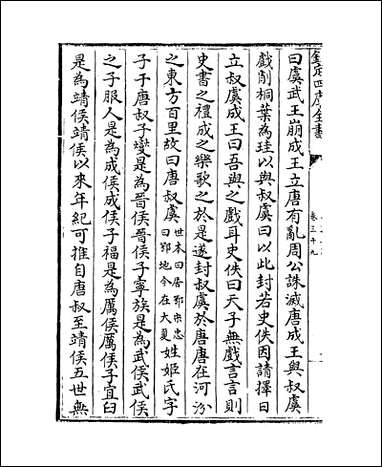 欽定四庫全書
卷三十九
曰虞武王崩成王立唐有亂周公誅滅唐成王與叔虞
戲削桐葉為珪以與叔虞曰以此封若史佚因請擇日
立叔虞成王曰吾與之戲耳史佚曰天子無戲言言則
史書之禮成之樂歌之於是遂封叔虞於唐唐在河汾
之東方百里故曰唐叔虞世本曰居鄂宋忠曰鄂地今在大夏姓姬氏字
子于唐叔子燮是為晉侯晉侯子寧族是為武侯武侯
之子服人是為成侯成侯子福是為厲侯厲侯子宜臼
是為靖侯靖侯以來年紀可推自唐叔至靖侯五世無